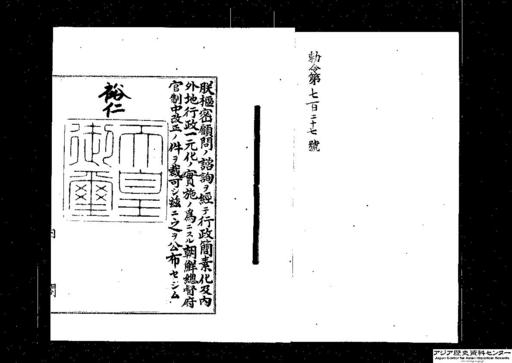 勅令第七百二十七號
朕樞密顧問ノ諮詢ヲ經テ行政簡素化及内
外地行政一元化ノ實施ノ爲ニスル朝鮮總督府
官制中改正ノ件ヲ裁可シ茲ニ之ヲ公布セシム
裕仁
天皇御璽
内
閣
アジア歴史資料センター
Japan Center for Asian Historical Records